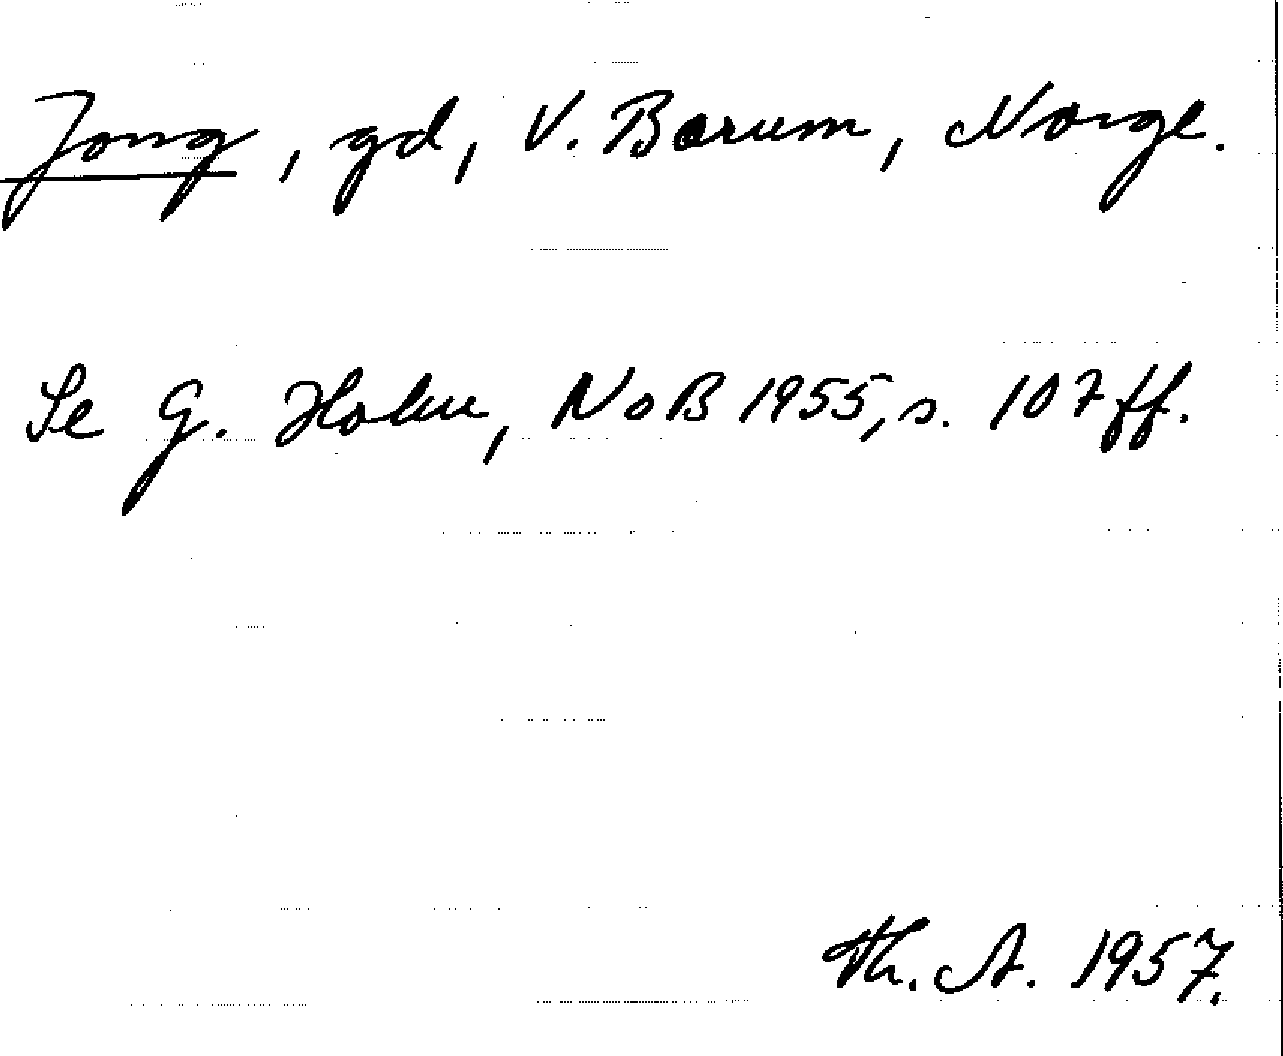 Jong, gd, V. Bærum, Norge.
Se G. Holm, NoB 1955, s. 107 ff.
Th. A. 1957.